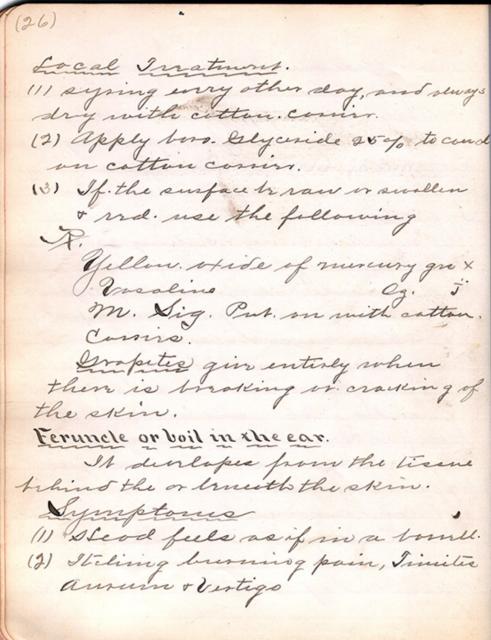 (26)
Local Treatment.
(1) syring every other day, and always
dry with cotton. carrier.
(2) Apply boro. Glyceride 25% to canal
on cotton carrier.
(3) If the surface be raw or swollen
& red. use the following
Rx.
Yellow. oxide of mercury grs X
Vasaline Oz. j
M. Sig. Put. on with cotton.
carrier.
Grapites give enterly when
there is breaking or cracking of
the skin.
Feruncle or boil in the ear.
It devlopes from the tissue
behind the or beneath the skin.
Symptoms
(1) Head feels as if in a
(2) Itching burning pain, Tinites
Aurum & Vertigo